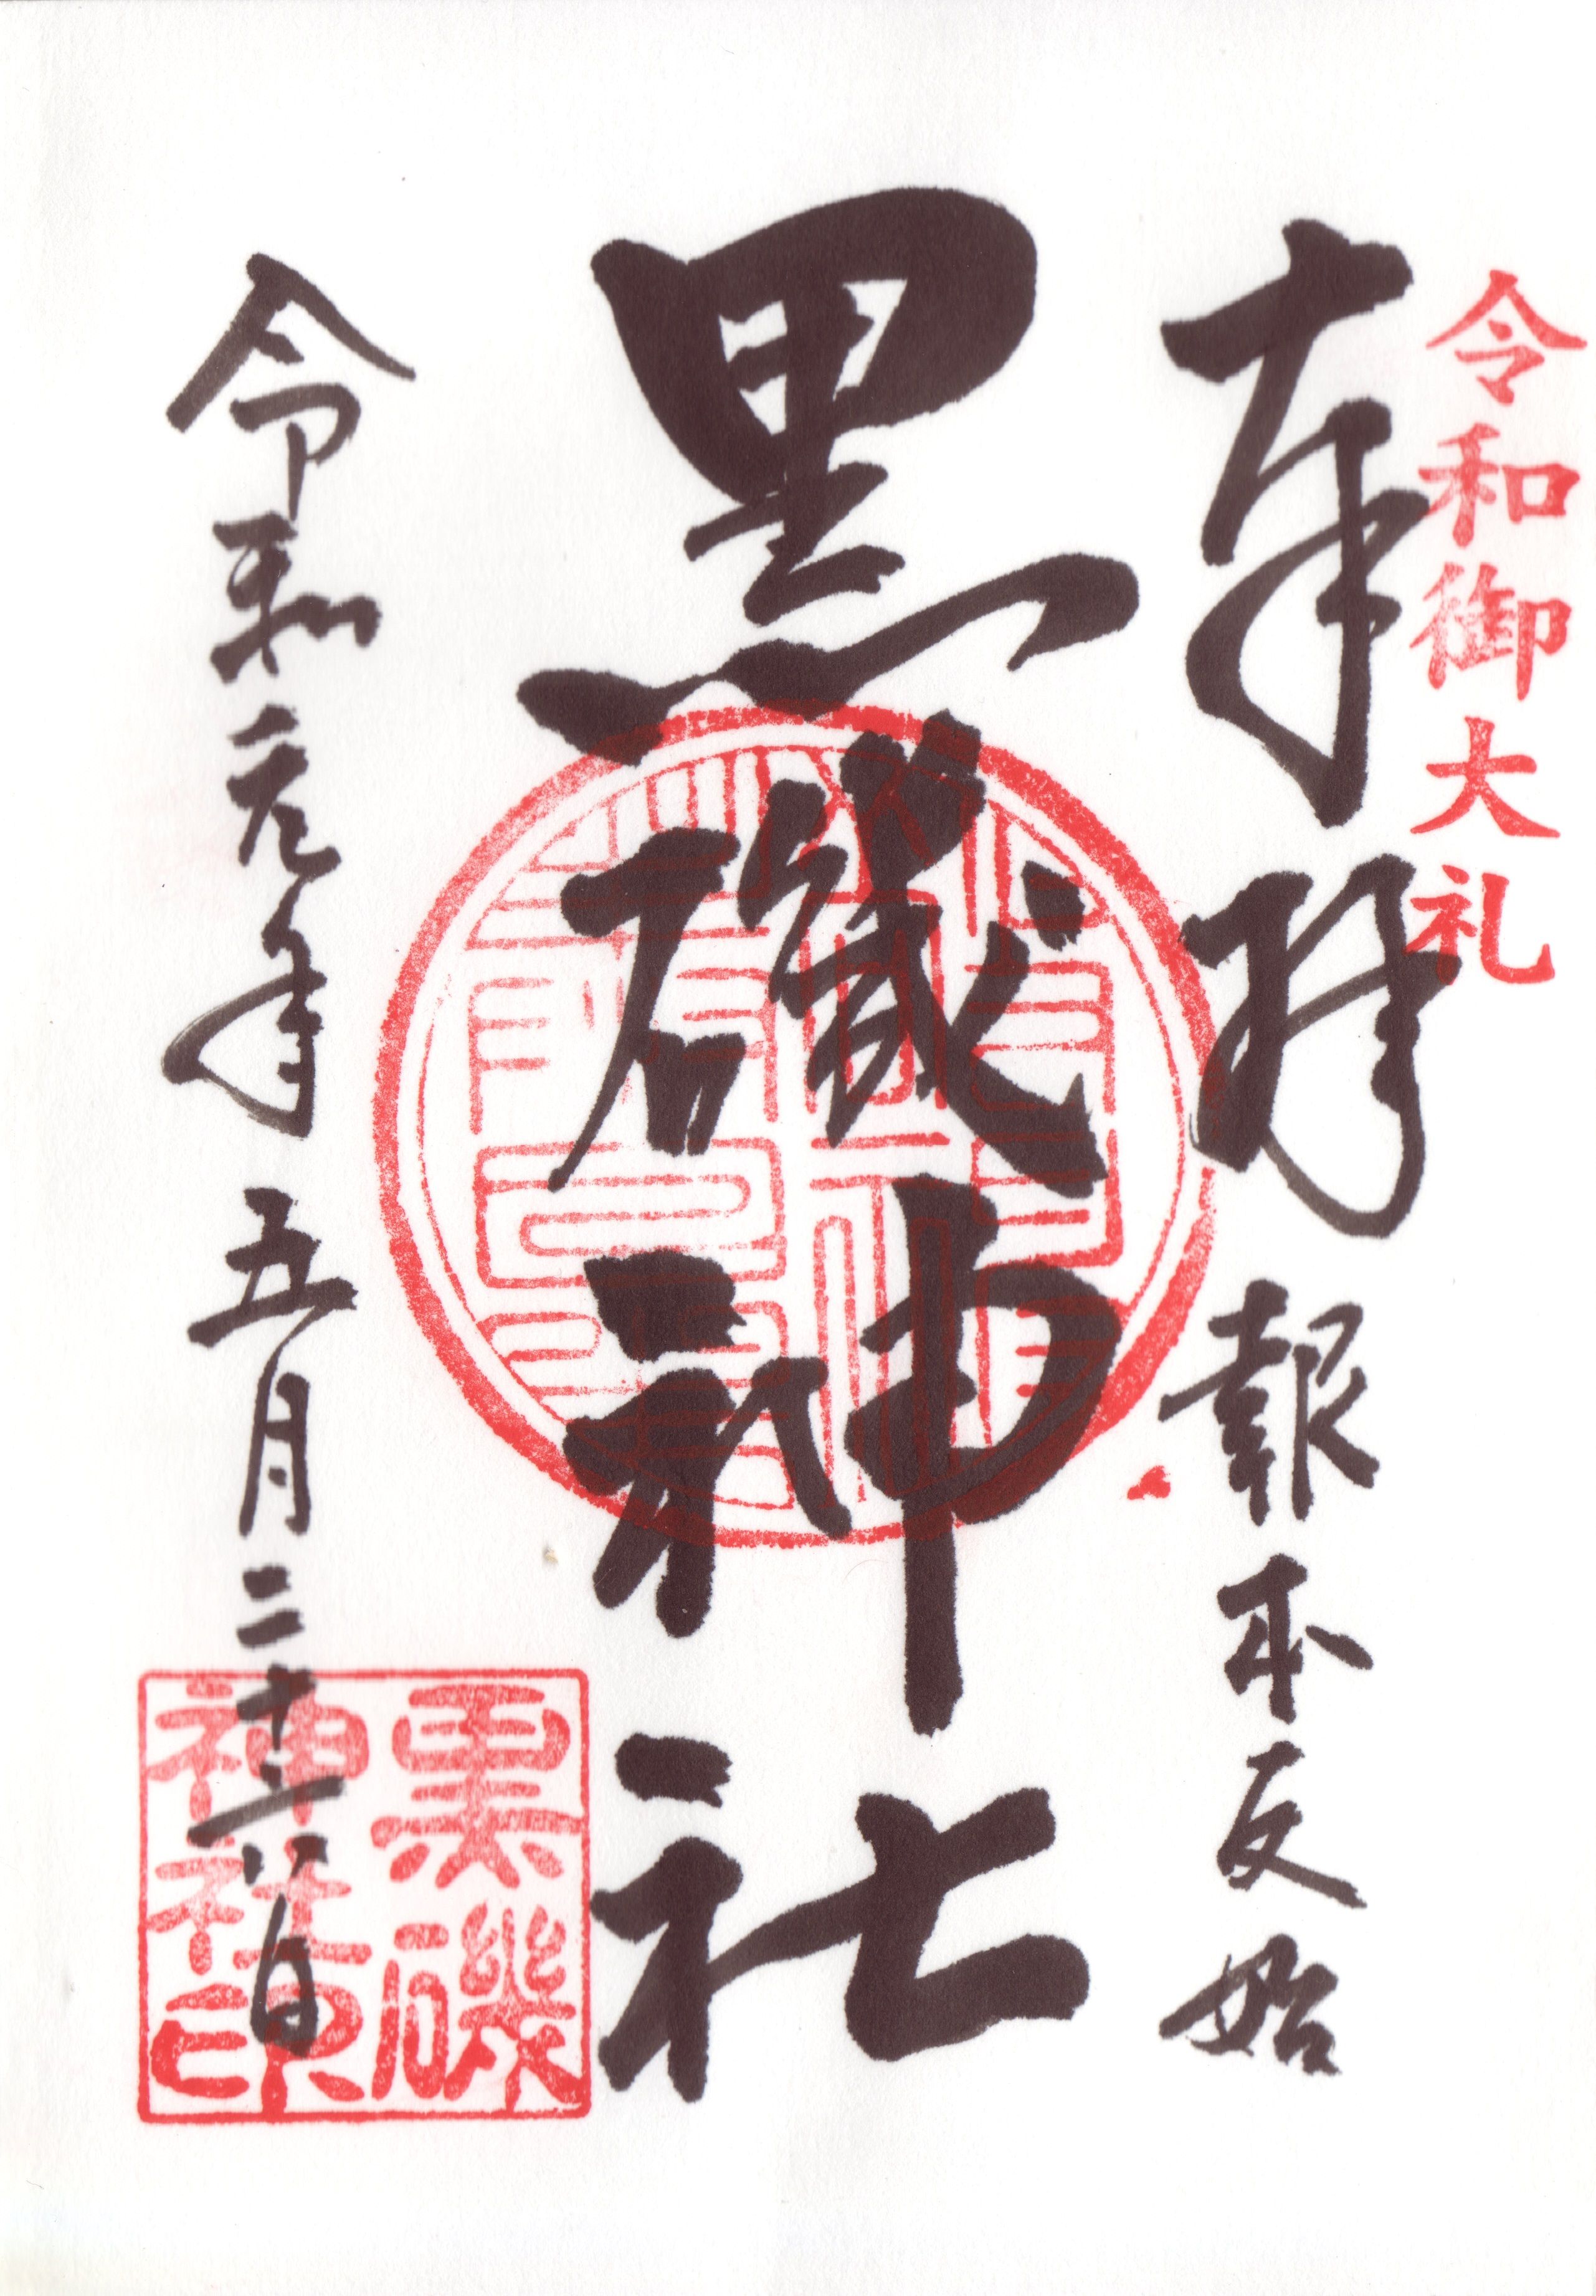 令和御大礼
奉拝 報本反始
黒磯神社
令和元年五月二十六日
黒磯
神社印